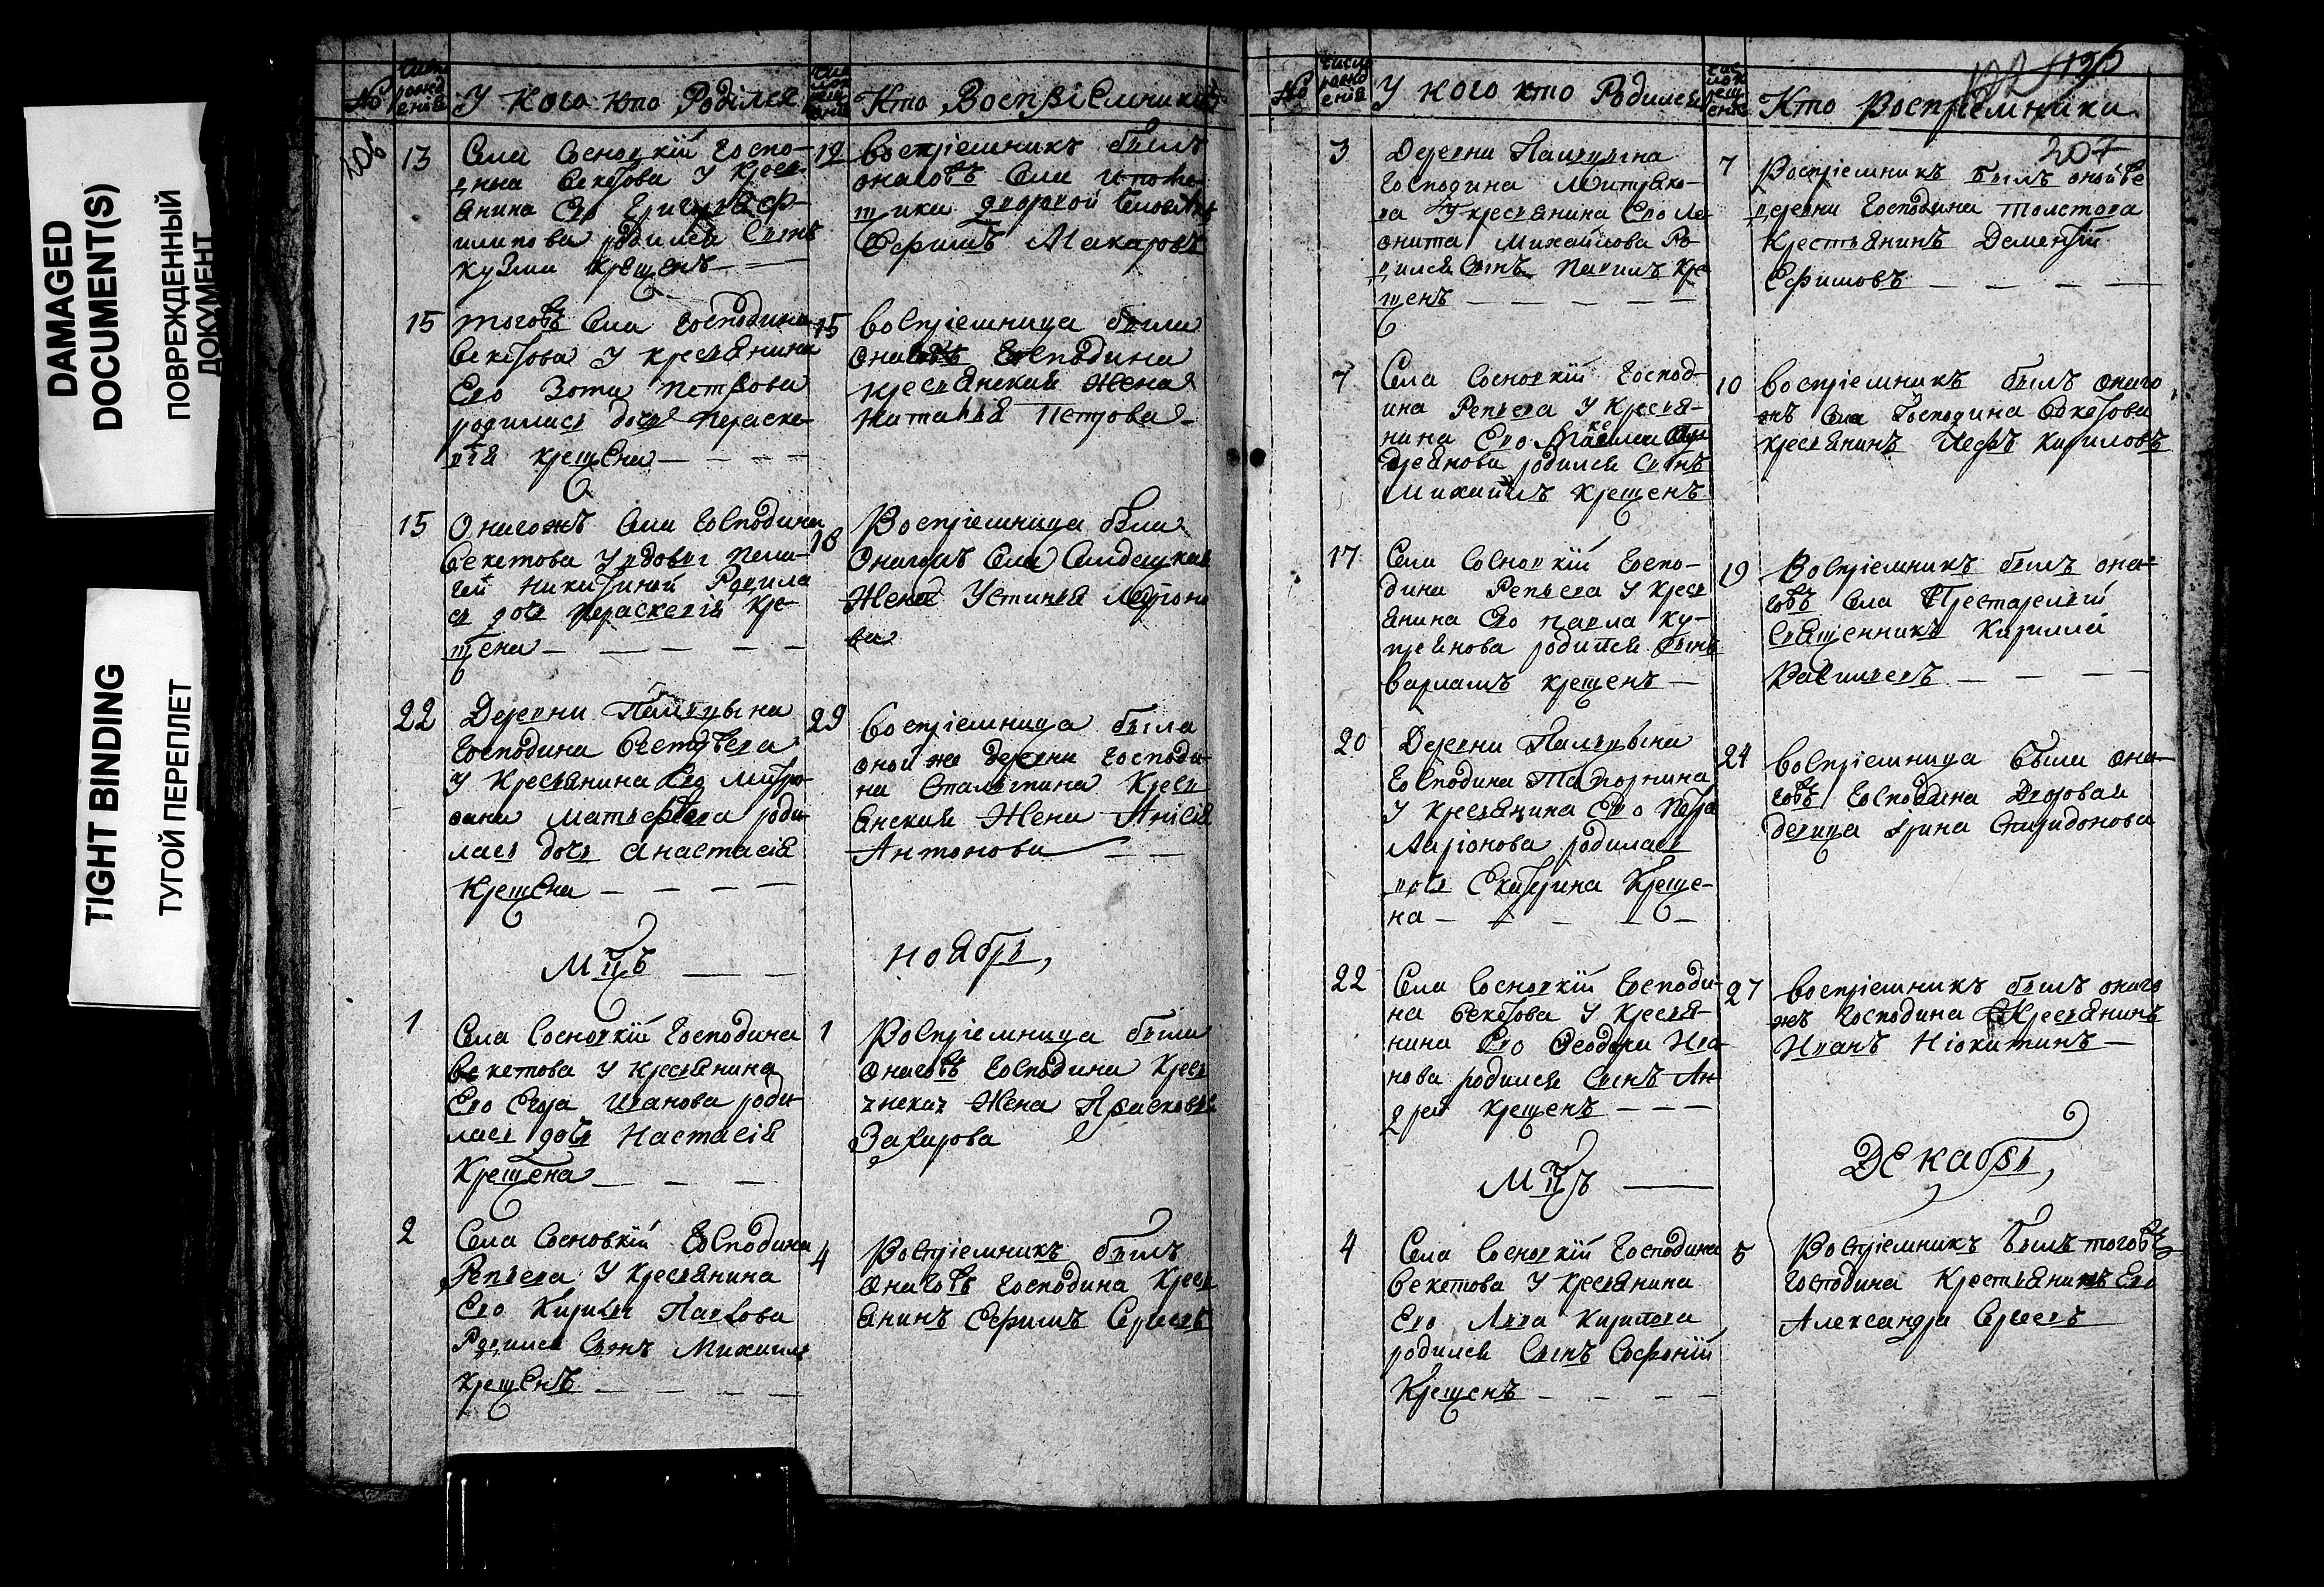 DAMAGED
DOCUMENT(S)
ПОВРЕЖДЕННЫЙ
ДОКУМЕНТ
TIGHT BINDING
ТУГОЙ ПЕРЕПЛЕТ
№ Число рожденія У кого кто Родился Кто Воспріемники
206
13 Села Сосновкій Госпо-
дина Бекетова У крест-
янина Его
родился Сынъ
Кузма крещенъ
12 Воспріемникъ былъ
онагожъ Села
дворовой человекъ
Ефимъ Макаровъ
15 тогожъ Села Господина
Бекетова У крестьянина
Его Зота Петрова
родилась дочь Параске-
вія крещена
15 Воспріемница была
онагожъ Господина
крестьянская Жена
Наталья Петрова
15 Онагожъ Села Господина
Бекетова У вдовы Пела-
геи Никитиной Родила
ся дочь Параскевія кре-
щена
18 Воспріемница была
Онагожъ Села Салдацкая
Жена Устинья
ва
22 Деревни
Господина
У Крестьянина Его Митро-
фана Матвеева роди-
лась дочь Анастасія
Крещена
29 Воспріемница была
оной же деревни Господи-
на Столыпина Крестъ
янская Жена Анисья
Антонова
Мцъ Ноябрь,
1 Села Сосновкій Господина
Бекетова У крестьянина
Его Егора Иванова роди-
лась дочь Настасія
Крещена
1 Воспріемница была
Онагожъ Господина Крест
янская Жена Прасковья
Захарова
2 Села Сосновкій Господина
Репьева У Крестьянина
Его Кирилы Павлова
Родился Сынъ Михаилъ
крещенъ
4 Воспріемникъ былъ
Онагожъ Господина Крест
янинъ Ефимъ Сергеевъ
№ Число рожденія У кого кто Родился Кто Воспріемники
196
207
3 Деревни
Господина Митрако-
ва У крестьянина Его Ле-
онтья Михайлова Ро-
дился Сынъ Павилъ Кре
щенъ
7 Воспріемникъ былъ онойже
деревни Господина Толстова
Крестьянинъ Дементій
Ефимовъ
7 Села Сосновкій Господ-
ина Репьева У Крестья-
нина Его
родился Сынъ
Михаилъ крещенъ
10 Воспріемникъ былъ онаго
жъ Села Господина Бекетова
крестьянинъ Іевъ Кириловъ
17 Села Сосновкій Госпо-
дина Репьева У Крест
янина Его Павла Ку-
преянова родился Сынъ
Варламъ крещенъ
19 Воспріемникъ былъ она-
гожъ Села Престарелый
Священникъ Кирилла
Васильевъ
20 Деревни
Господина Таторнина
У Крестьянина Его Петра
Ларіонова родилась
дочь Екатерина Креще-
на
24 Воспріемница была она-
гожъ Господина Дворовая
девица Ірина Спиридонова
22 Села Сосновкій Господи-
на Бекетова У Крестья-
нина Его Ѳеодора Ива-
нова родился Сынъ Ан
дрей крещенъ
27 Воспріемникъ былъ онаго
жъ Господина Крестьянинъ
Иванъ Никитинъ
Мцъ Декабрь,
4 Села Сосновкій Господина
Бекетова У крестьянина
Его Лвва Кирилова
родился Сынъ Софоній
Крещенъ
5 Воспріемникъ былъ тогожъ
Господина Крестьянинъ Его
Александра Сергеевъ